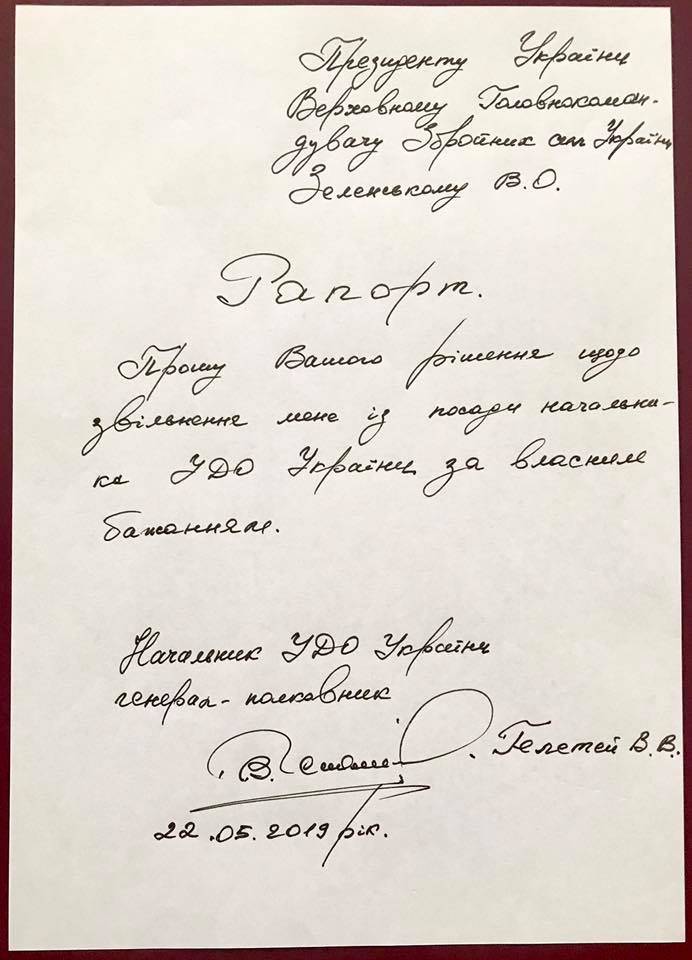 Президенту України
Верховному Головнокоман-
дувачу Збройних сил України
Зеленському В.О.
Рапорт.
Прошу Вашого рішення щодо
звільнення мене із посади начальни-
ка УДО України за власним
бажанням.
Начальник УДО України
генерал-полковник
В. Гелетей В.В.
22.05.2019 рік.